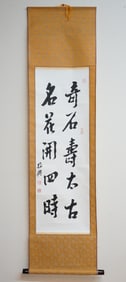 奇石壽太古
名花開四時